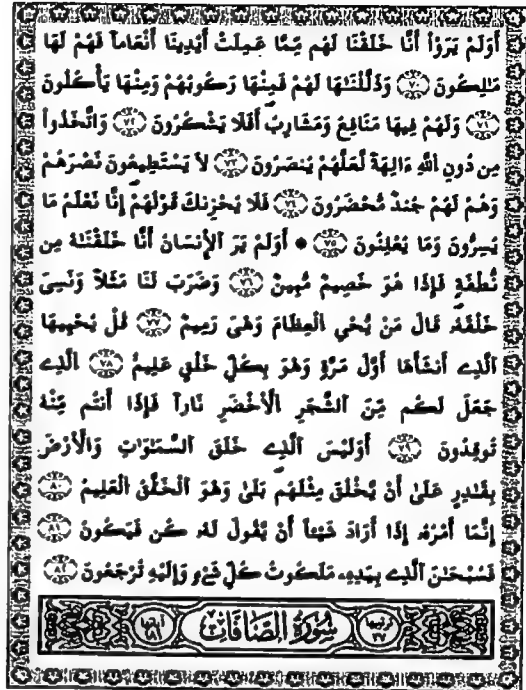 أَوَلَمْ يَرَوْاْ أَنَّا خَلَقْنَا لَهُم مِّمَّا عَمِلَتْ أَيْدِينَا أَنْعَاماً فَهُمْ لَهَا
مَٰلِكُونَ ٧٠ وَذَلَّلْنَٰهَا لَهُمْ فَمِنْهَا رَكُوبُهُمْ وَمِنْهَا يَأْكُلُونَ
٧١ وَلَهُمْ فِيهَا مَنَافِعُ وَمَشَارِبُ أَفَلَا يَشْكُرُونَ ٧٢ وَاتَّخَذُواْ
مِن دُونِ اللَّهِ ءَالِهَةً لَّعَلَّهُمْ يُنصَرُونَ ٧٣ لَا يَسْتَطِيعُونَ نَصْرَهُمْ
وَهُمْ لَهُمْ جُندٌ مُّحْضَرُونَ ٧٤ فَلَا يُحْزِنكَ قَوْلُهُمْ إِنَّا نَعْلَمُ مَا
يُسِرُّونَ وَمَا يُعْلِنُونَ ٧٥ * أَوَلَمْ يَرَ الْإِنسَانُ أَنَّا خَلَقْنَٰهُ مِن
نُّطْفَةٍ فَإِذَا هُوَ خَصِيمٌ مُّبِينٌ ٧٦ وَضَرَبَ لَنَا مَثَلاً وَنَسِيَ
خَلْقَهُۥ قَالَ مَنْ يُّحْيِ الْعِظَامَ وَهِيَ رَمِيمٌ ٧٧ قُلْ يُحْيِيهَا
الَّذِي أَنشَأَهَا أَوَّلَ مَرَّةٍ وَهُوَ بِكُلِّ خَلْقٍ عَلِيمٌ ٧٨ الَّذِي
جَعَلَ لَكُم مِّنَ الشَّجَرِ الْأَخْضَرِ نَاراً فَإِذَا أَنتُم مِّنْهُ
تُوقِدُونَ ٧٩ أَوَلَيْسَ الَّذِي خَلَقَ السَّمَٰوَٰتِ وَالْأَرْضَ
بِقَٰدِرٍ عَلَىٰ أَنْ يَّخْلُقَ مِثْلَهُم بَلَىٰ وَهُوَ الْخَلَّٰقُ الْعَلِيمُ ٨٠
إِنَّمَا أَمْرُهُۥ إِذَا أَرَادَ شَيْئاً أَنْ يَّقُولَ لَهُۥ كُن فَيَكُونُ ٨١
فَسُبْحَٰنَ الَّذِي بِيَدِهِۦ مَلَكُوتُ كُلِّ شَيْءٍ وَإِلَيْهِ تُرْجَعُونَ ٨٢
ترتيبها ٣٧ سُورَةُ الصَّافَّاتِ